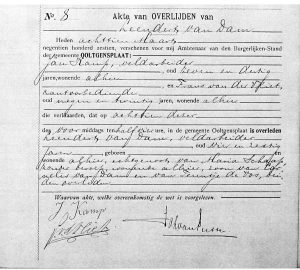 No. 8 Akte van OVERLIJDEN van
Leendert van Dam
Heden achttien Maart
negentien honderd zestien, verschenen voor mij Ambtenaar van den Burgerlijken-Stand
der gemeente OOLTGENSPLAAT:
Jan Kamp, veldarbeider
oud zeven en dertig
jaren, wonende alhier en Frans van der
oud negen en twintig jaren, wonende alhier
die verklaarden, dat op achttien dezer
des voormiddags ten half vier ure, in de gemeente Ooltgensplaat is overleden
Leendert van Dam, veldarbeider
oud vier en zestig
jaren, geboren en
wonende alhier, echtgenoot van Maria
wonende alhier, zoon van
van Dam en van Leuntje de Vos, bei-
den overleden
Waarvan akte, welke overeenkomstig de wet is voorgelezen.
J Kamp